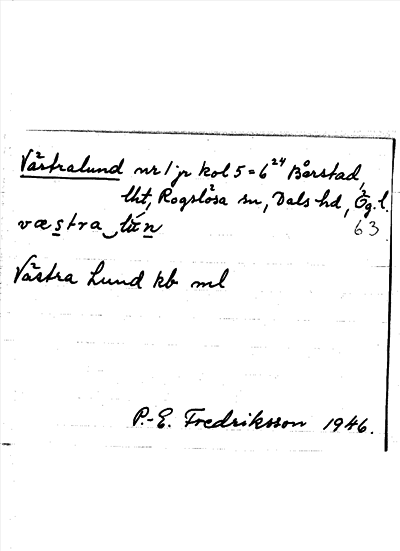 Västralund nr 1 jr kol 5 = 6²⁴ Bårstad,
tht, Rogslösa sn, Dals hd, Ög. l.
væstra lún 63
Västra Lund kb ml
P.-E. Fredriksson 1946.